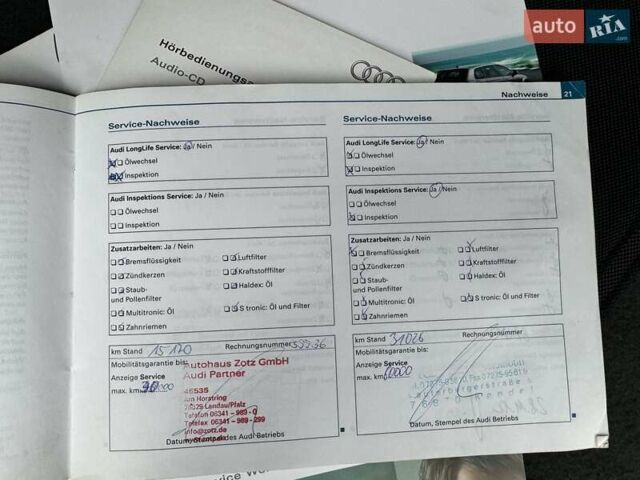 auto RIA.com
Hörbedienungsa
Audio-CD
Nachweise 21
Service-Nachweise
Audi LongLife Service: Ja / Nein
Ölwechsel
Inspektion
Audi Inspektions Service: Ja / Nein
Ölwechsel
Inspektion
Zusatzarbeiten: Ja / Nein
Bremsflüssigkeit Luftfilter
Zündkerzen Kraftstofffilter
Staub- Haldex: Öl
und Pollenfilter
Multitronic: Öl S tronic: Öl und Filter
Zahnriemen
km Stand 15170 Rechnungsnummer
Mobilitätsgarantie bis:
Autohaus Zotz GmbH
Audi Partner
Anzeige Service
max. km
46535
Am Horstring
Landau/Pfalz
Telefon 06341 - 989 - 0
Telefax 06341 - 989 - 299
info@zotz.de
Datum, Stempel des Audi Betriebs
Service-Nachweise
Audi LongLife Service: Ja / Nein
Ölwechsel
Inspektion
Audi Inspektions Service: Ja / Nein
Ölwechsel
Inspektion
Zusatzarbeiten: Ja / Nein
Bremsflüssigkeit Luftfilter
Zündkerzen Kraftstofffilter
Staub- Haldex: Öl
und Pollenfilter
Multitronic: Öl S tronic: Öl und Filter
Zahnriemen
km Stand 31026 Rechnungsnummer
Mobilitätsgarantie bis:
Anzeige Service
max. km
Datum, Stempel des Audi Betriebs